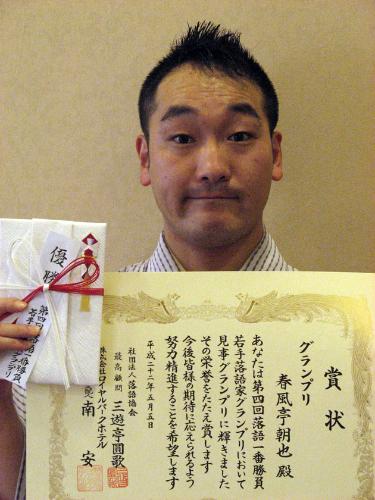 賞状
グランプリ
春風亭朝也 殿
あなたは第四回落語一番勝負
若手落語家グランプリにおいて
見事グランプリに輝きました
その栄誉をたたえ賞します
今後皆様の期待に応えられるよう
努力精進することを希望します
平成二十二年五月五日
社団法人 落語協会
最高顧問 三遊亭圓歌
株式会社ロイヤルパークホテル
南 安
優勝
第四回落語一番勝負
若手
グランプリ